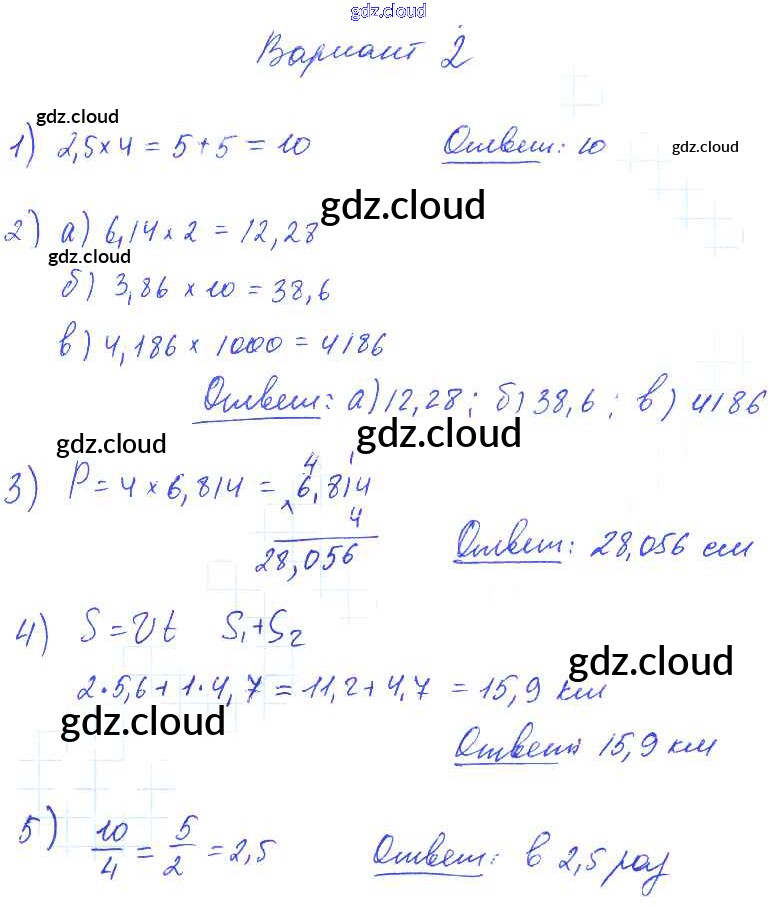 gdz.cloud
Вариант 2
gdz.cloud
1) 2,5 × 4 = 5 + 5 = 10 Ответ: 10 gdz.cloud
gdz.cloud
2) а) 6,14 × 2 = 12,28
gdz.cloud
б) 3,86 × 10 = 38,6
в) 4,186 × 1000 = 4186
Ответ: а) 12,28; б) 38,6; в) 4186
gdz.cloud gdz.cloud
4 1
3) P = 4 × 6,814 = × 6,814
4
28,056 Ответ: 28,056 см
4) S = vt S₁+S₂
gdz.cloud
2·5,6 + 1·4,7 = 11,2 + 4,7 = 15,9 км
gdz.cloud
Ответ: 15,9 км
5) 10/4 = 5/2 = 2,5 Ответ: в 2,5 раз